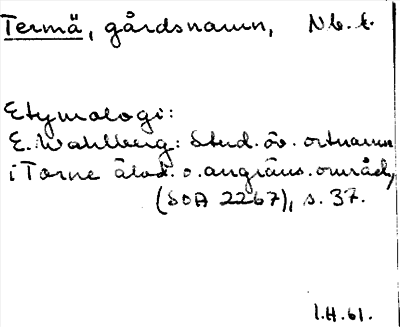 Termä, gårdsnamn, Nb. t.
Etymologi:
E. Wahlberg: Stud. öv. ortnamn
i Torne älvd. o. angräns. områd,
(SOA 2267), s. 37.
I.H. 61.